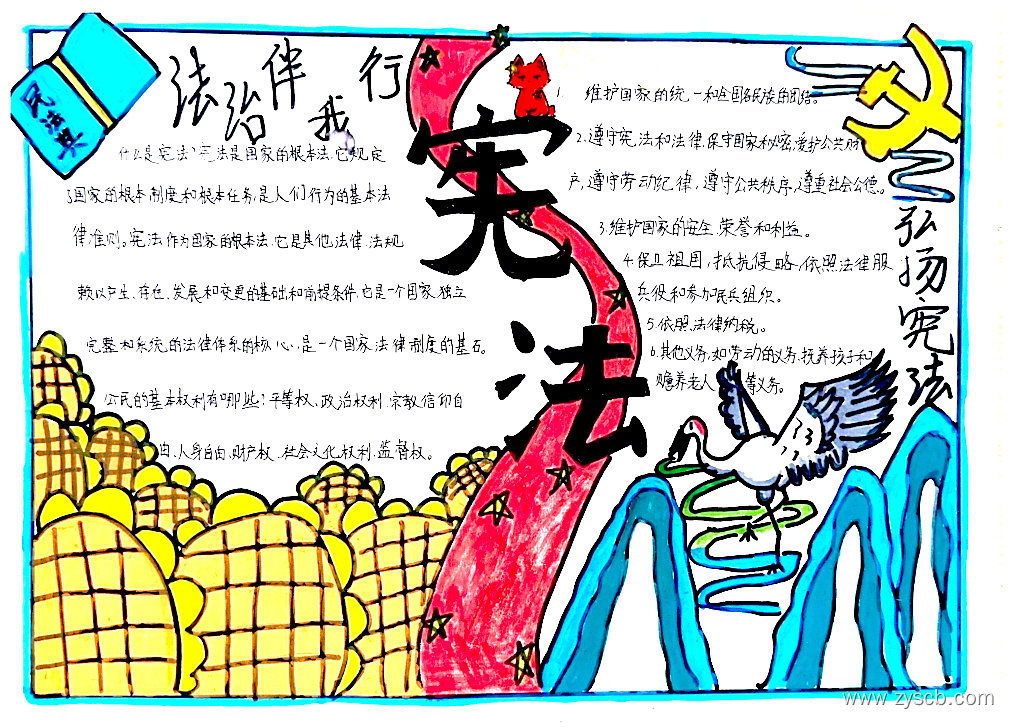 民法典
法治伴我行
什么是宪法?宪法是国家的根本法,它规定
了国家的根本制度和根本任务,是人们行为的基本法
律准则。宪法作为国家的根本法,它是其他法律、法规
赖以产生、存在、发展和变更的基础和前提条件,它是一个国家独立
完整和系统的法律体系的核心,是一个国家法律制度的基石。
公民的基本权利有哪些?平等权、政治权利、宗教信仰自
由、人身自由、财产权、社会文化权利、监督权。
宪法
1. 维护国家的统一和全国各民族的团结。
2.遵守宪法和法律,保守国家秘密,爱护公共财
产,遵守劳动纪律,遵守公共秩序,遵重社会公德。
3.维护国家的安全、荣誉和利益。
4.保卫祖国,抵抗侵略,依照法律服
兵役和参加民兵组织。
5.依照法律纳税。
6.其他义务,如劳动的义务,抚养孩子和
赡养老人等义务。
弘扬宪法
www.zyscb.com